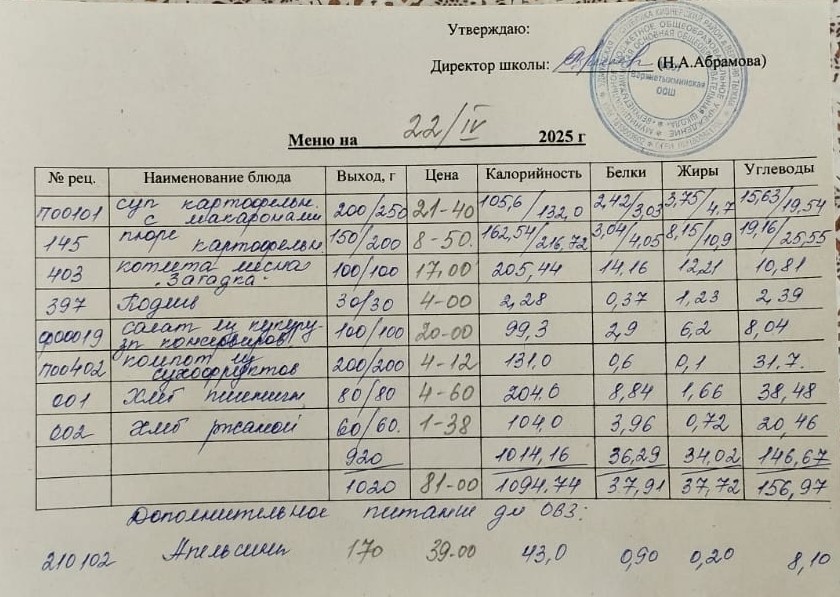 Утверждаю:
Директор школы: (Н.А.Абрамова)
Верхнетыжминская
ООШ
Меню на 22/IV 2025 г
№ рец. Наименование блюда Выход, г Цена Калорийность Белки Жиры Углеводы
П00101 суп картофельн. с макаронами 200/250 21-40 105,6/132,0 2,42/3,03 3,75/4,7 15,63/19,54
145 пюре картофельн 150/200 8-50. 162,54/216,72 3,04/4,05 8,15/10,9 19,16/25,55
403 котлета мясная "Загадка" 100/100 17,00 205,44 14,16 12,21 10,81
397 Подлив 30/30 4-00 2,28 0,37 1,23 2,39
ф00019 салат из кукуру- зы консервиров 100/100 20-00 99,3 2,9 6,2 8,04
П00402 компот из сухофруктов 200/200 4-12 131,0 0,6 0,1 31,7.
001 Хлеб пшеничн 80/80 4-60 204.0 8,84 1,66 38,48
002 Хлеб ржаной 60/60. 1-38 104.0 3,96 0,72 20,46
920 1014,16 36,29 34,02 146,67
1020 81-00 1094.74 37,91 37,72 156,97
Дополнительное питание дл ОВЗ:
210102 Апельсин 170 39-00 43,0 0,90 0,20 8,10